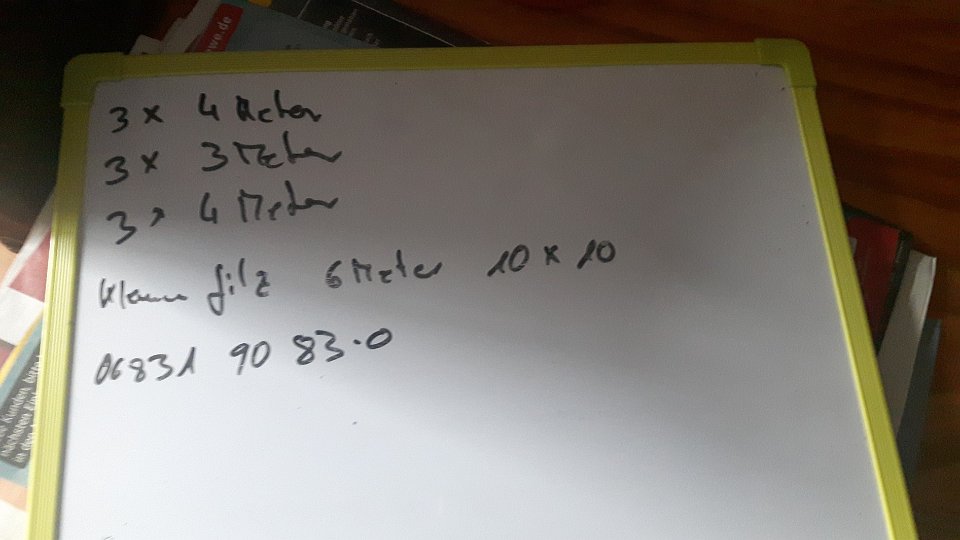 we.de
3 x 4 Meter
3 x 3 Meter
3 x 4 Meter
filz 6 Meter 10 x 10
06831 90 83.0
Kunden